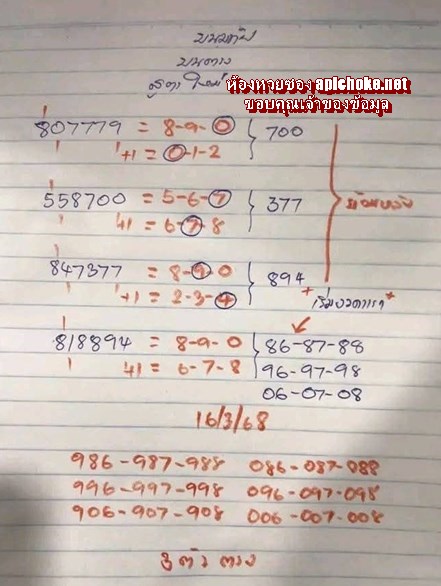 บนบก
บนตาราง
สูตรใหม่
ห้องหวยซอง apichoke.net
ขอบคุณเจ้าของข้อมูล
807779 = 8-9-0 } 700
+1 = 0-1-2
558700 = 5-6-7 } 377
+1 = 6-7-8
847377 = 8-9-0 } 894
+1 = 2-3-4
818894 = 8-9-0 } 86-87-88
+1 = 6-7-8 96-97-98
06-07-08
16/3/68
986-987-988 086-087-088
996-997-998 096-097-098
906-907-908 006-007-008
3 ตัวตรง